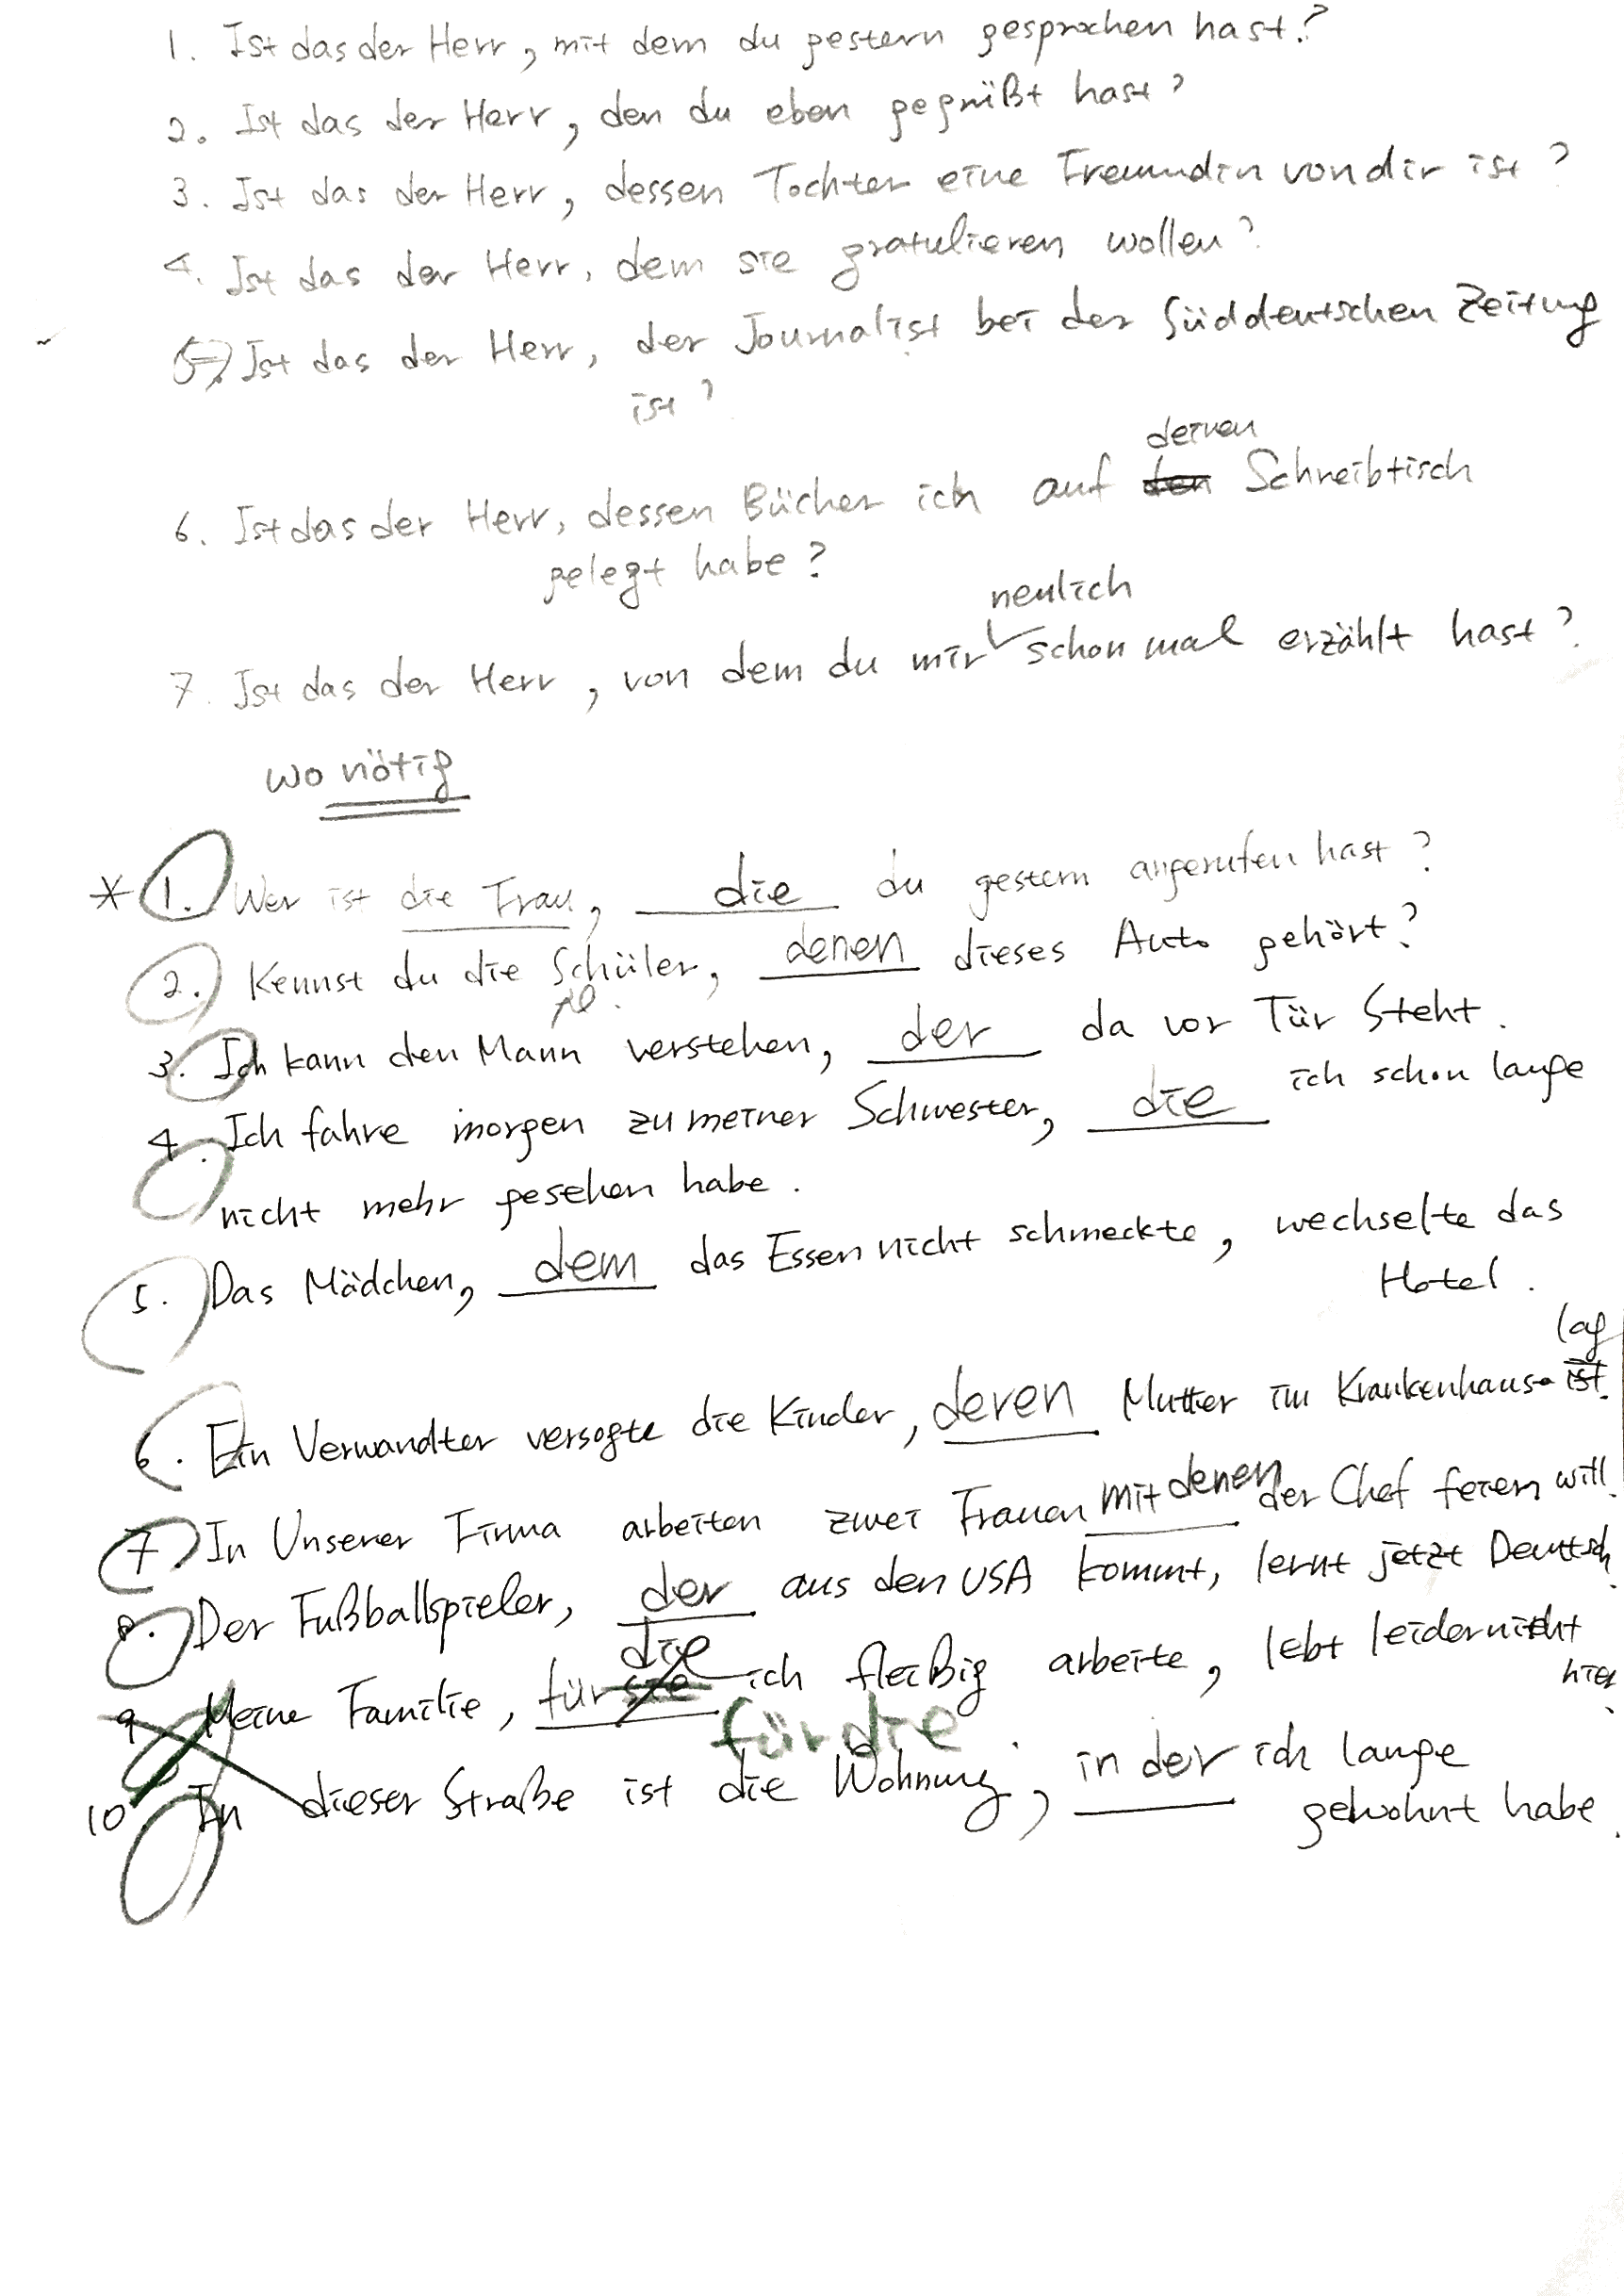 1. Ist das der Herr, mit dem du gestern gesprochen hast?
2. Ist das der Herr, den du eben gegrüßt hast?
3. Ist das der Herr, dessen Tochter eine Freundin von dir ist?
4. Ist das der Herr, dem sie gratulieren wollen?
5. Ist das der Herr, der Journalist bei der Süddeutschen Zeitung
ist?
deinen
6. Ist das der Herr, dessen Bücher ich auf den Schreibtisch
gelegt habe?
neulich
7. Ist das der Herr, von dem du mir schon mal erzählt hast?
wo nötig
* 1. Wer ist die Frau, die du gestern angerufen hast?
2. Kennst du die Schüler, denen dieses Auto gehört?
pl.
3. Ich kann den Mann verstehen, der da vor Tür steht.
4. Ich fahre morgen zu meiner Schwester, die ich schon lange
nicht mehr gesehen habe.
5. Das Mädchen, dem das Essen nicht schmeckte, wechselte das
Hotel.
lag
6. Ein Verwandter versogte die Kinder, deren Mutter im Krankenhause ist.
7. In Unserer Firma arbeiten zwei Frauen mit denen der Chef feiern will.
8. Der Fußballspieler, der aus den USA kommt, lernt jetzt Deuttsch.
die
9. Meine Familie, für sie ich fleißig arbeite, lebt leider nicht
hier.
für die
10. In dieser Straße ist die Wohnung, in der ich lange
gewohnt habe.